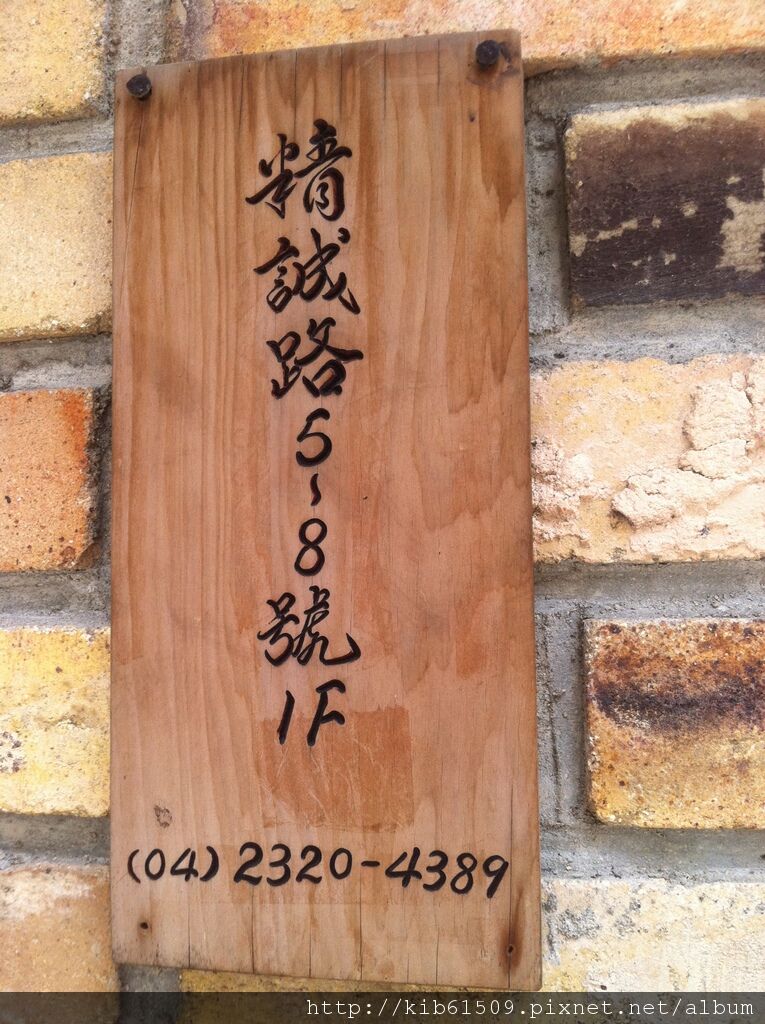 精誠路5~8號1F
(04)2320-4389
http://kib61509.pixnet.net/album